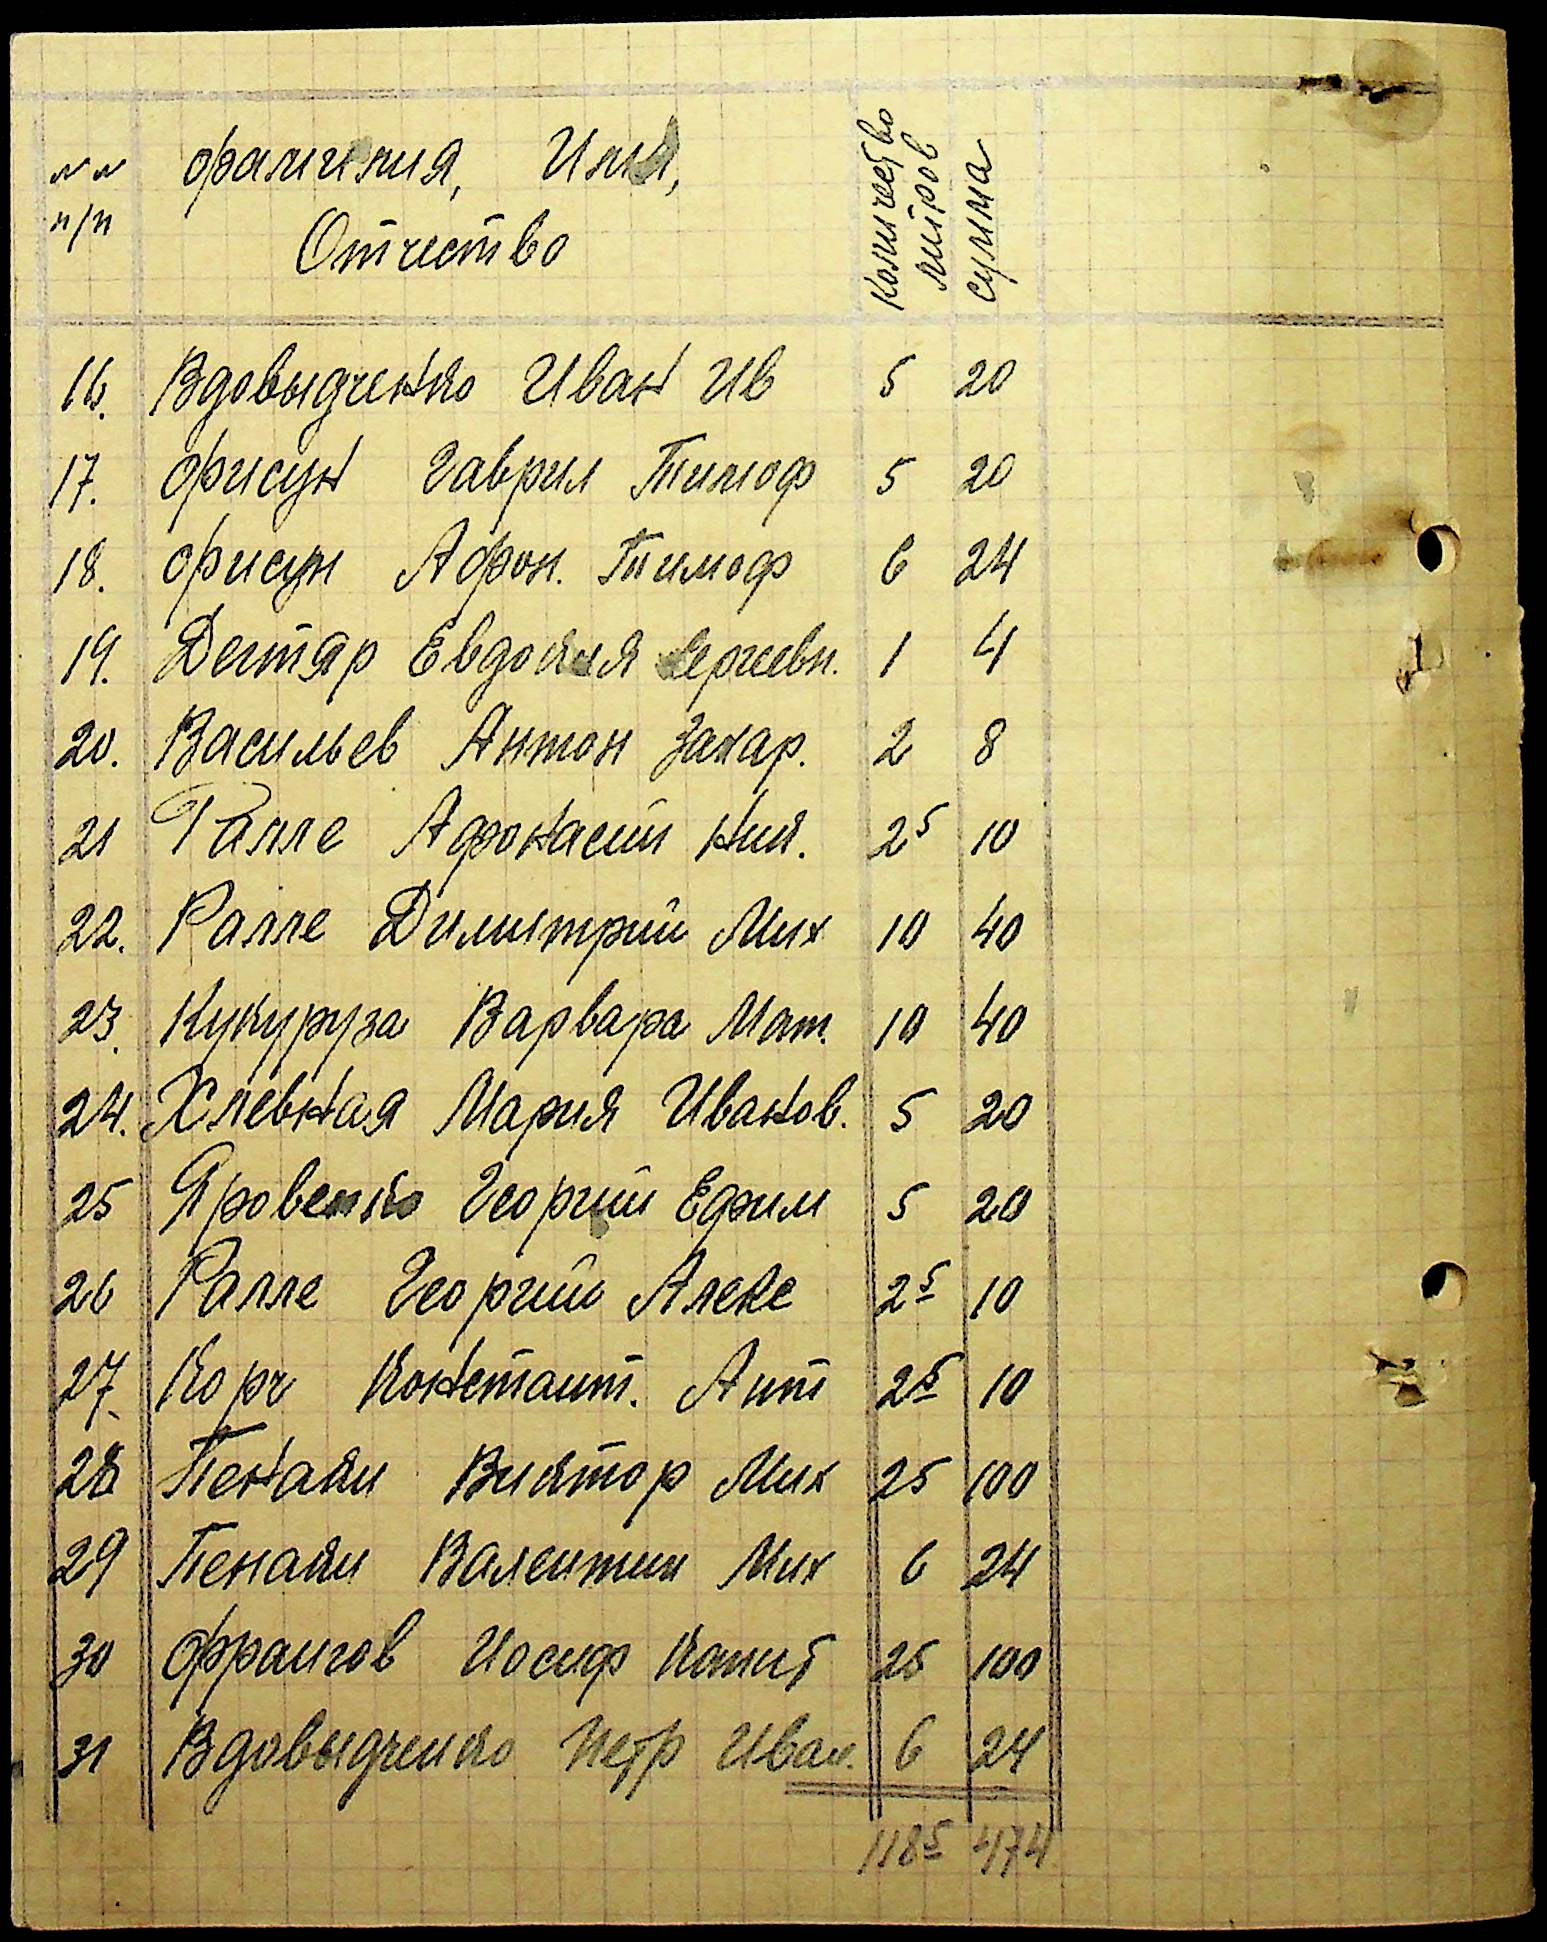 №№ Фамилия, Имя, Количество литров сумма
п/п Отчество
16. Вдовыдченко Иван Ив 5 20
17. Фисун Гаврил Тимоф 5 20
18. Фисун Афон. Тимоф 6 24
19. Дегтяр Евдокия Сергеевн. 1 4
20. Васильев Антон Захар. 2 8
21 Ралле Афонасий Ник. 2⁵ 10
22. Ралле Димитрий Мих 10 40
23. Кукуруза Варвара Мат. 10 40
24. Хлевная Мария Иванов. 5 20
25 Яровенко Георгий Ефим 5 20
26 Ралле Георгий Алекс 2⁵ 10
27. Корч Констант. Ант 2⁵ 10
28 Пенаки Виктор Мих 25 100
29 Пенаки Валентин Мих 6 24
30 Франгов Иосиф 25 100
31 Вдовыдченко Петр Иван. 6 24
118⁵ 474